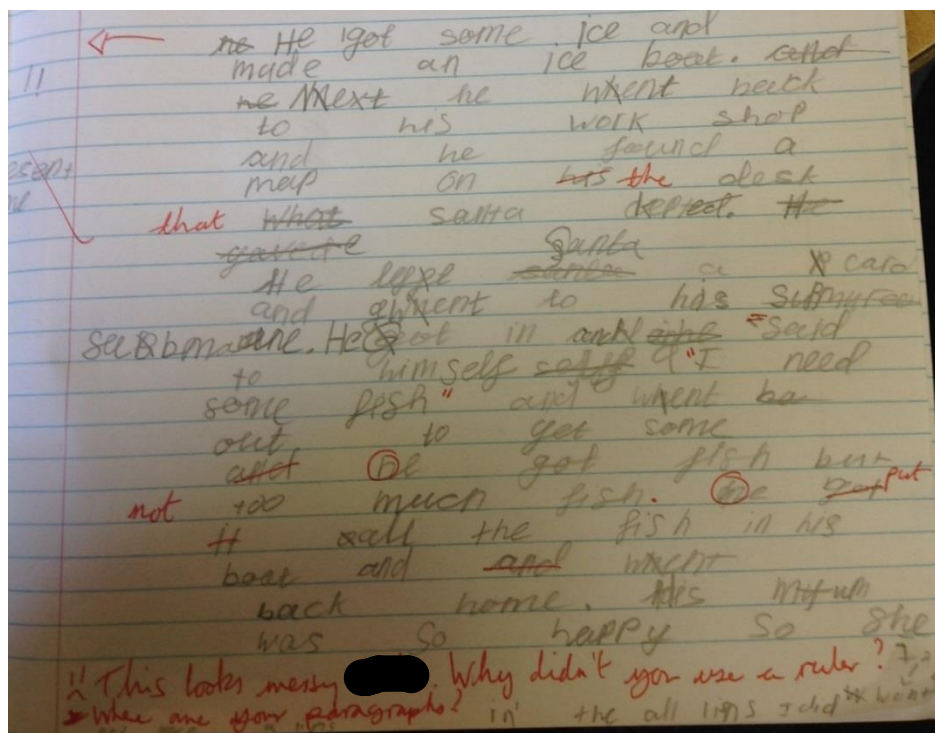 !!
he He got some ice and
made an ice boat. and
he Next he went back
to his work shop
and he found a
map on his the desk
that what santa
Santa
He a card
and went to his
submarine. He got in and said
to himself "I need
some fish" and went ba
out to get some
and he got fish but
not too much fish. he put
it all the fish in his
boat and and went
back home. His mum
was so happy so she
!! This looks messy . Why didn't you use a ruler?
Where are your paragraphs? in the all lins I did